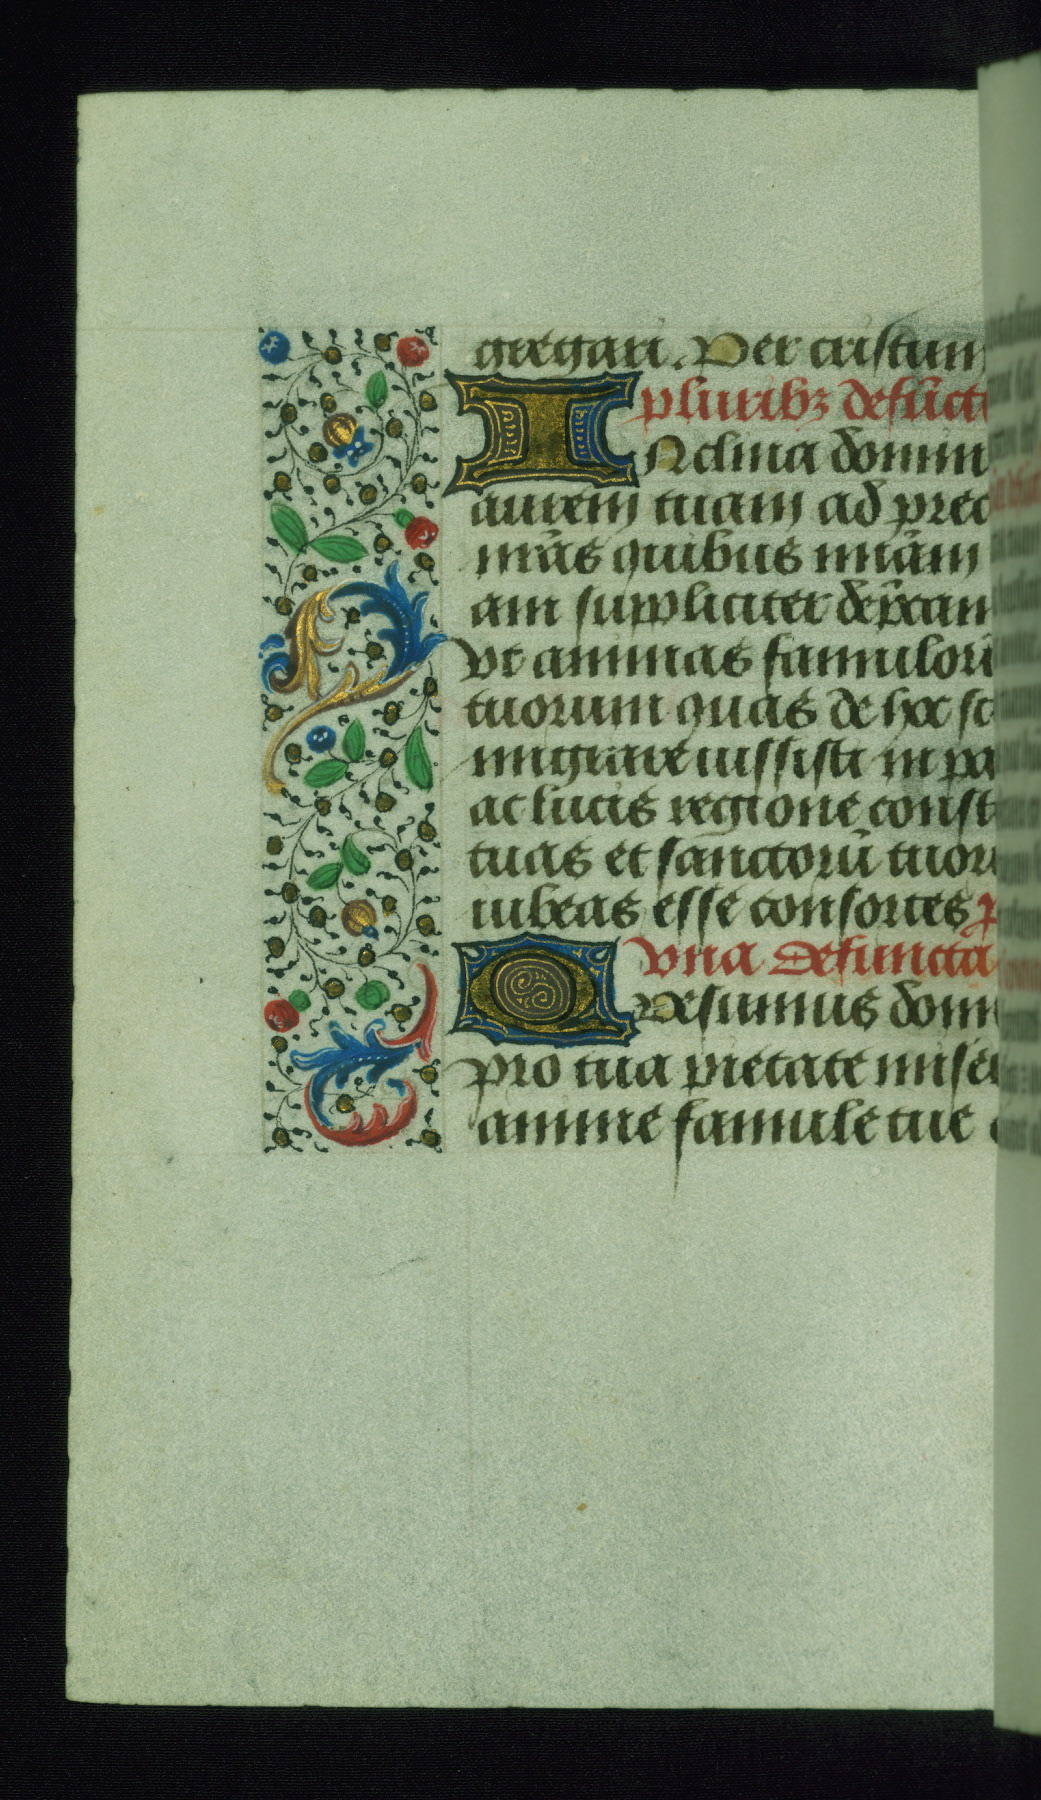 gregari. Per cristum
pluribꝫ defūct
INclina domin
aurem tuam ad prec
nr̄as quibus miām
am suppliciter dep̄cam
vt animas famulorū
tuorum quas de hoc sc
migrare iussisti in pa
ac lucis regione const
tuas et sanctorū tuor
iubeas esse consortes p
vna defuncta
QVesumus domi
pro tua pietate mise
anime famule tue